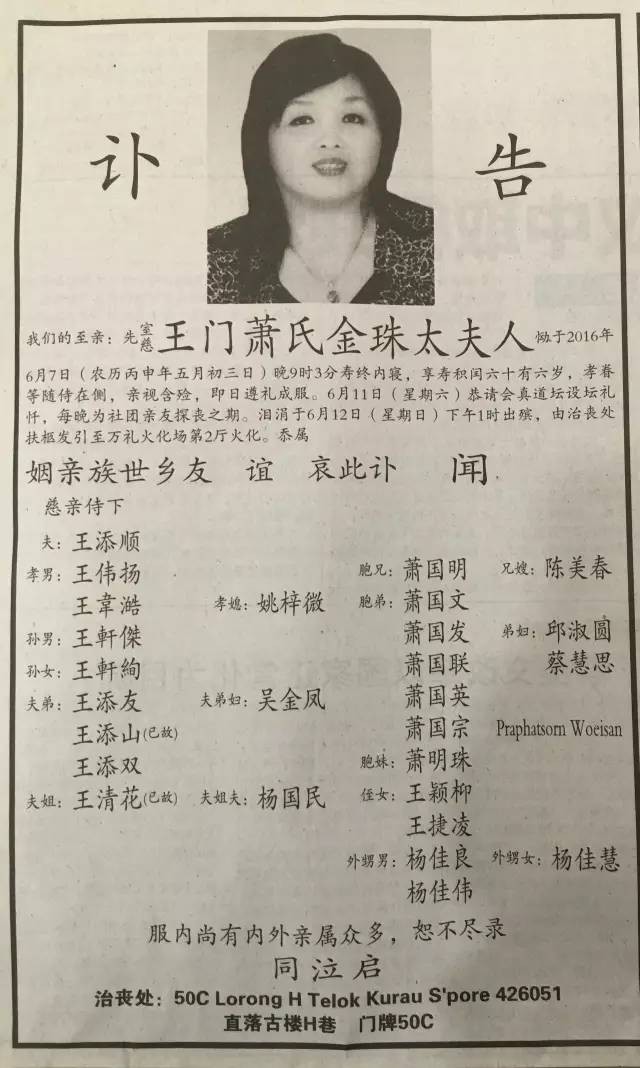 讣 告
我们的至亲：先室慈王门萧氏金珠太夫人恸于2016年
6月7日（农历丙申年五月初三日）晚9时3分寿终内寝，享寿积闰六十有六岁，孝眷
等随侍在侧，亲视含殓，即日遵礼成服。6月11日（星期六）恭请会真道坛设坛礼
忏，每晚为社团亲友探丧之期。泪涓于6月12日（星期日）下午1时出殡，由治丧处
扶柩发引至万礼火化场第2厅火化。忝属
姻亲族世乡友 谊 哀此讣 闻
慈亲侍下
夫：王添顺
孝男：王伟扬 胞兄：萧国明 兄嫂：陈美春
王韋澔 孝媳：姚梓微 胞弟：萧国文
孙男：王軒傑 萧国发 弟妇：邱淑圆
孙女：王軒絢 萧国联 蔡慧思
夫弟：王添友 夫弟妇：吴金凤 萧国英
王添山(已故) 萧国宗 Praphatsorn Woeisan
王添双 胞妹：萧明珠
夫姐：王清花(已故) 夫姐夫：杨国民 侄女：王颖柳
王捷凌
外甥男：杨佳良 外甥女：杨佳慧
杨佳伟
服内尚有内外亲属众多，恕不尽录
同泣启
治丧处：50C Lorong H Telok Kurau S'pore 426051
直落古楼H巷 门牌50C